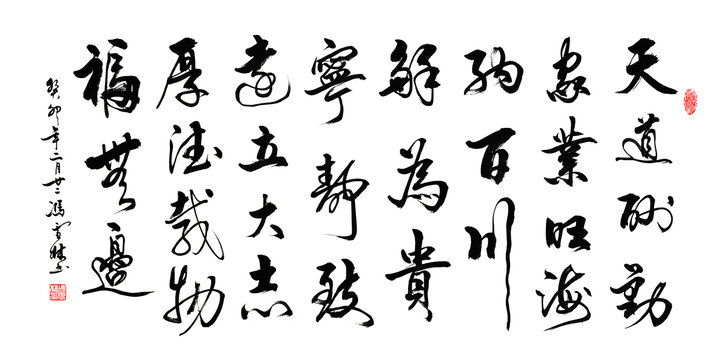 天道酬勤
家業旺海
納百川
龢為貴
寧靜致
遠立大志
厚德載物
福無邊
癸卯年二月廿二馮雪林书